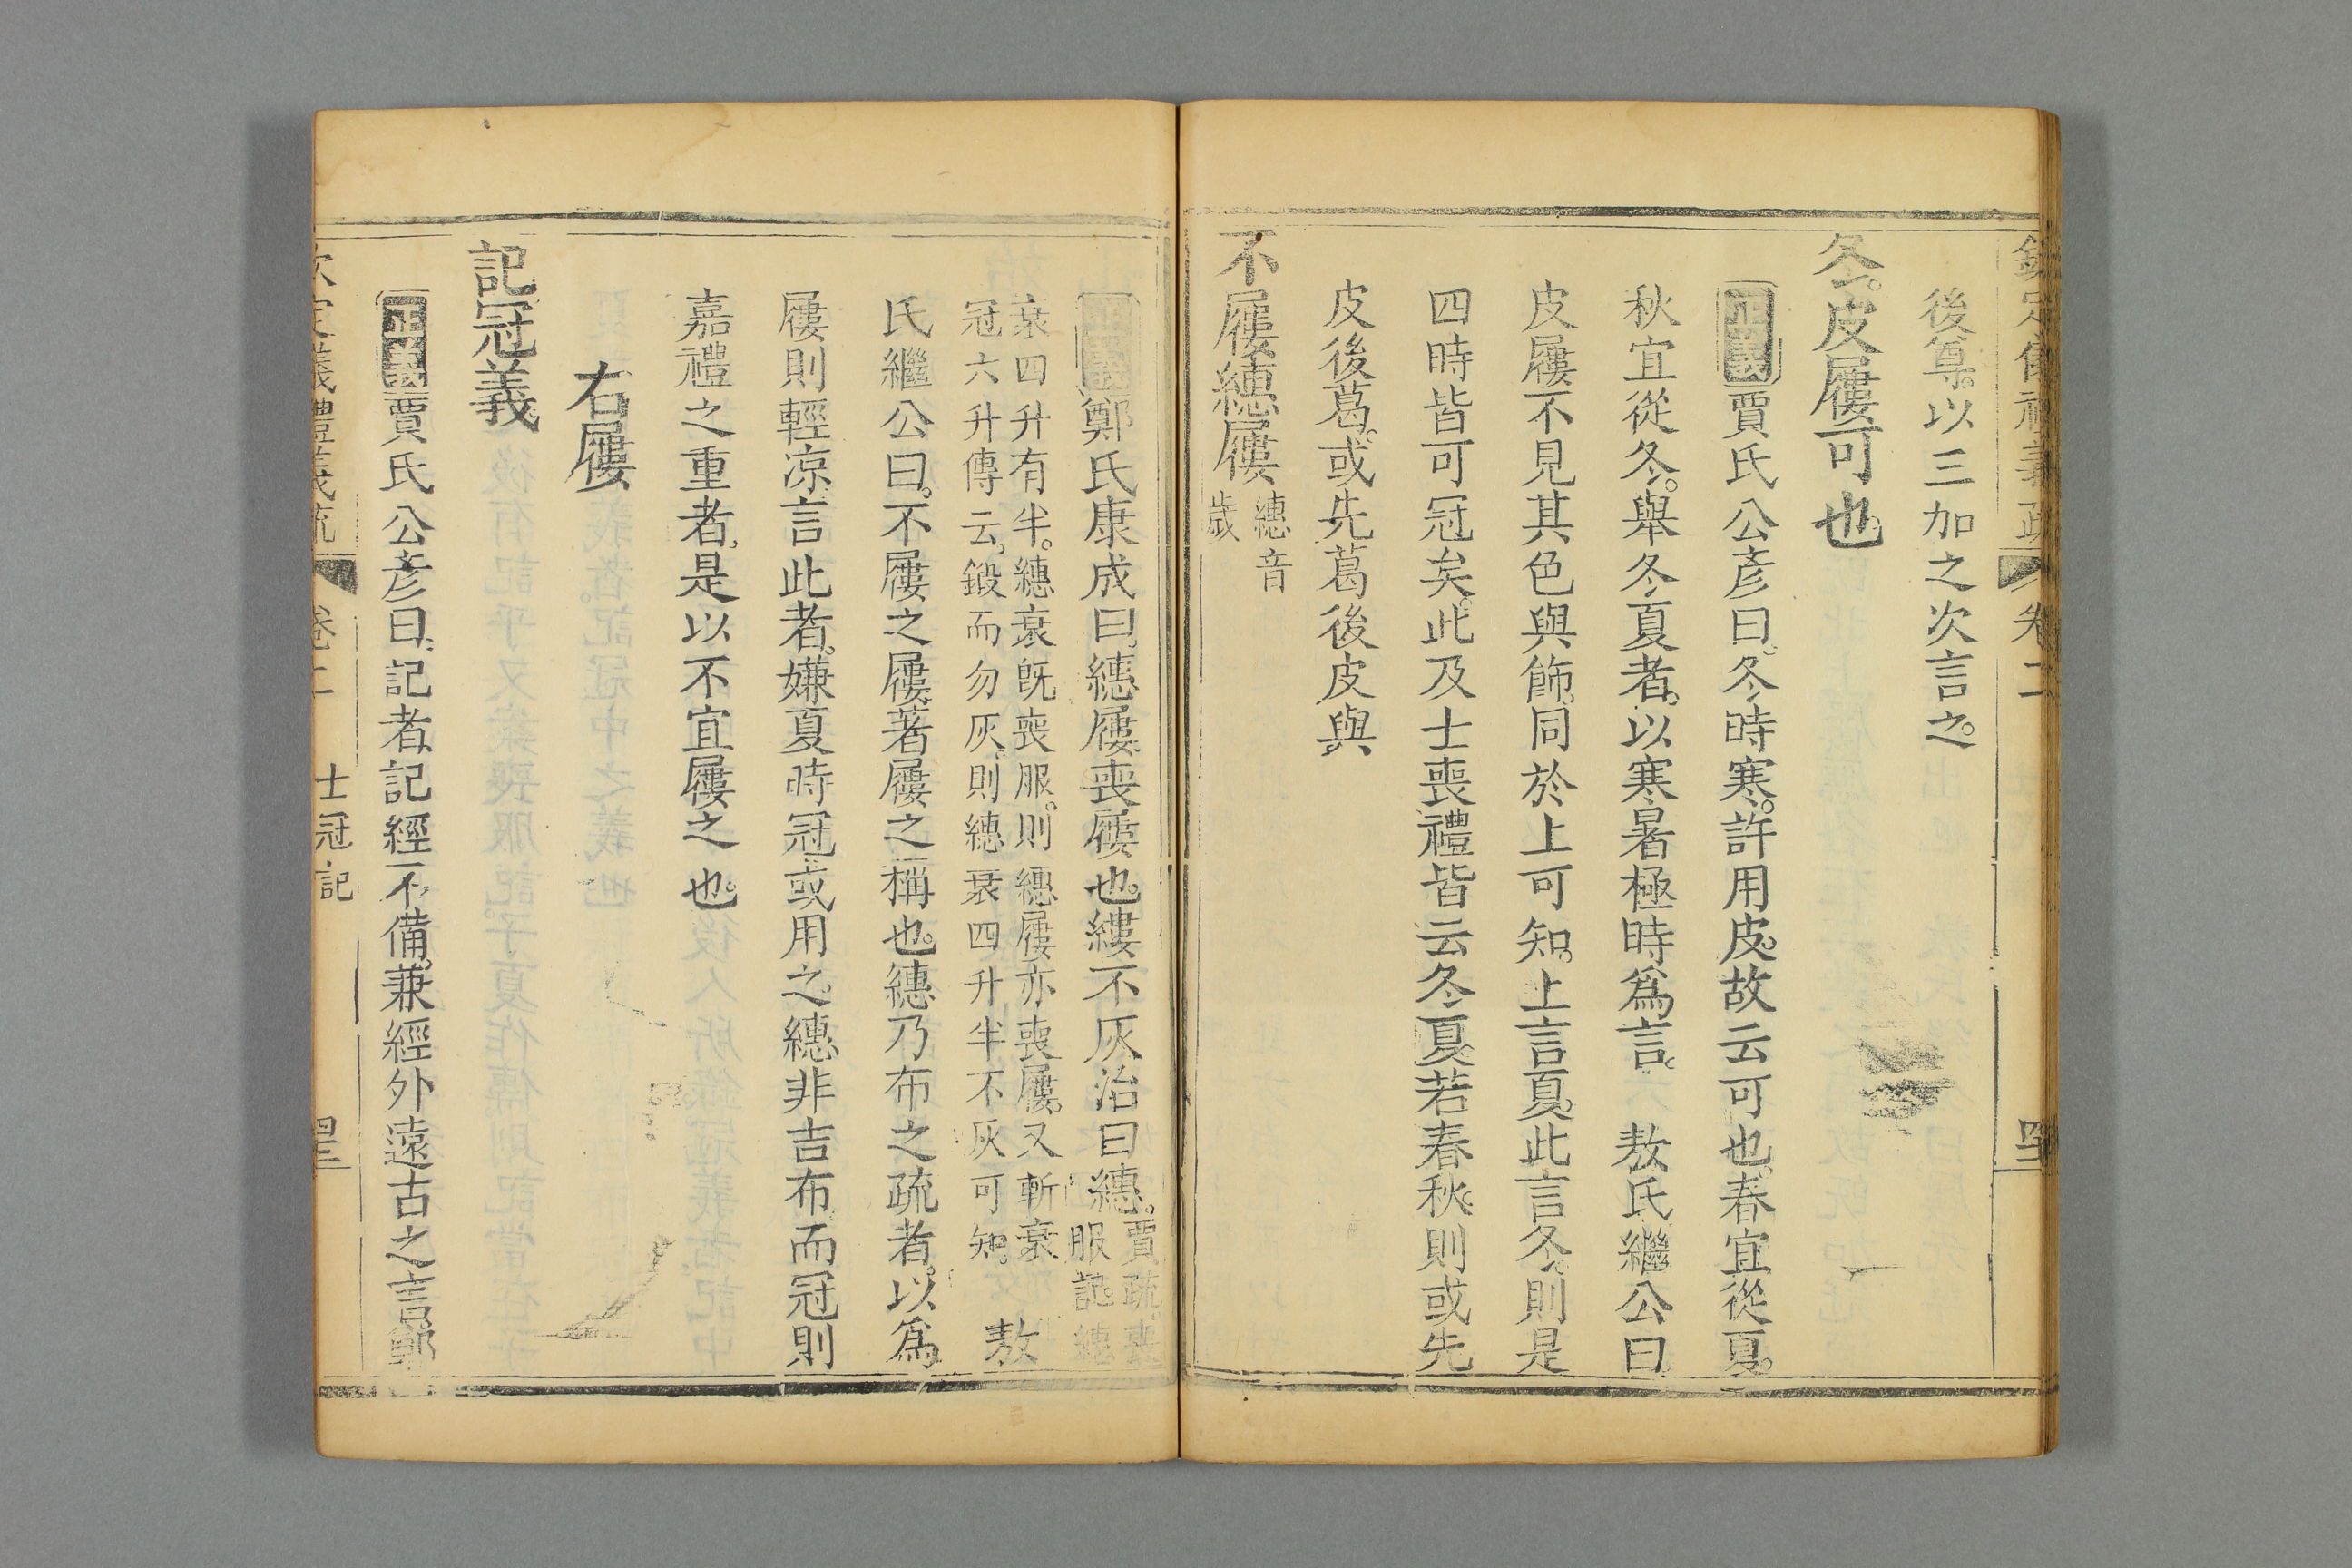 欽定儀禮義疏 卷二
後尊。以三加之次言之。
冬。皮屨可也。
正義賈氏公彥曰。冬時寒。許用皮。故云可也。春宜從夏。
秋宜從冬。舉冬夏者。以寒暑極時爲言。 敖氏繼公曰
皮屨不見其色與飾。同於上可知。上言夏。此言冬。則是
四時皆可冠矣。此及士喪禮皆云冬夏。若春秋。則或先
皮後葛。或先葛後皮與
不屨繐屨
繐音
歲
正義鄭氏康成曰。繐屨。喪屨也。縷不灰治曰繐。
賈疏。喪
服記。繐
衰四升有半。繐衰旣喪服。則繐屨亦喪屨。又斬衰
冠六升傳云。鍛而勿灰。則繐衰四升半不灰可知。
敖
氏繼公曰。不屨之屨。著屨之稱也。繐乃布之疏者。以爲
屨則輕凉。言此者。嫌夏時冠或用之。繐非吉布。而冠則
嘉禮之重者。是以不宜屨之也。
右屨
記冠義。
正義賈氏公彥曰。記者。記經不備。兼經外遠古之言。鄭
欽定儀禮義疏 卷二 士冠記